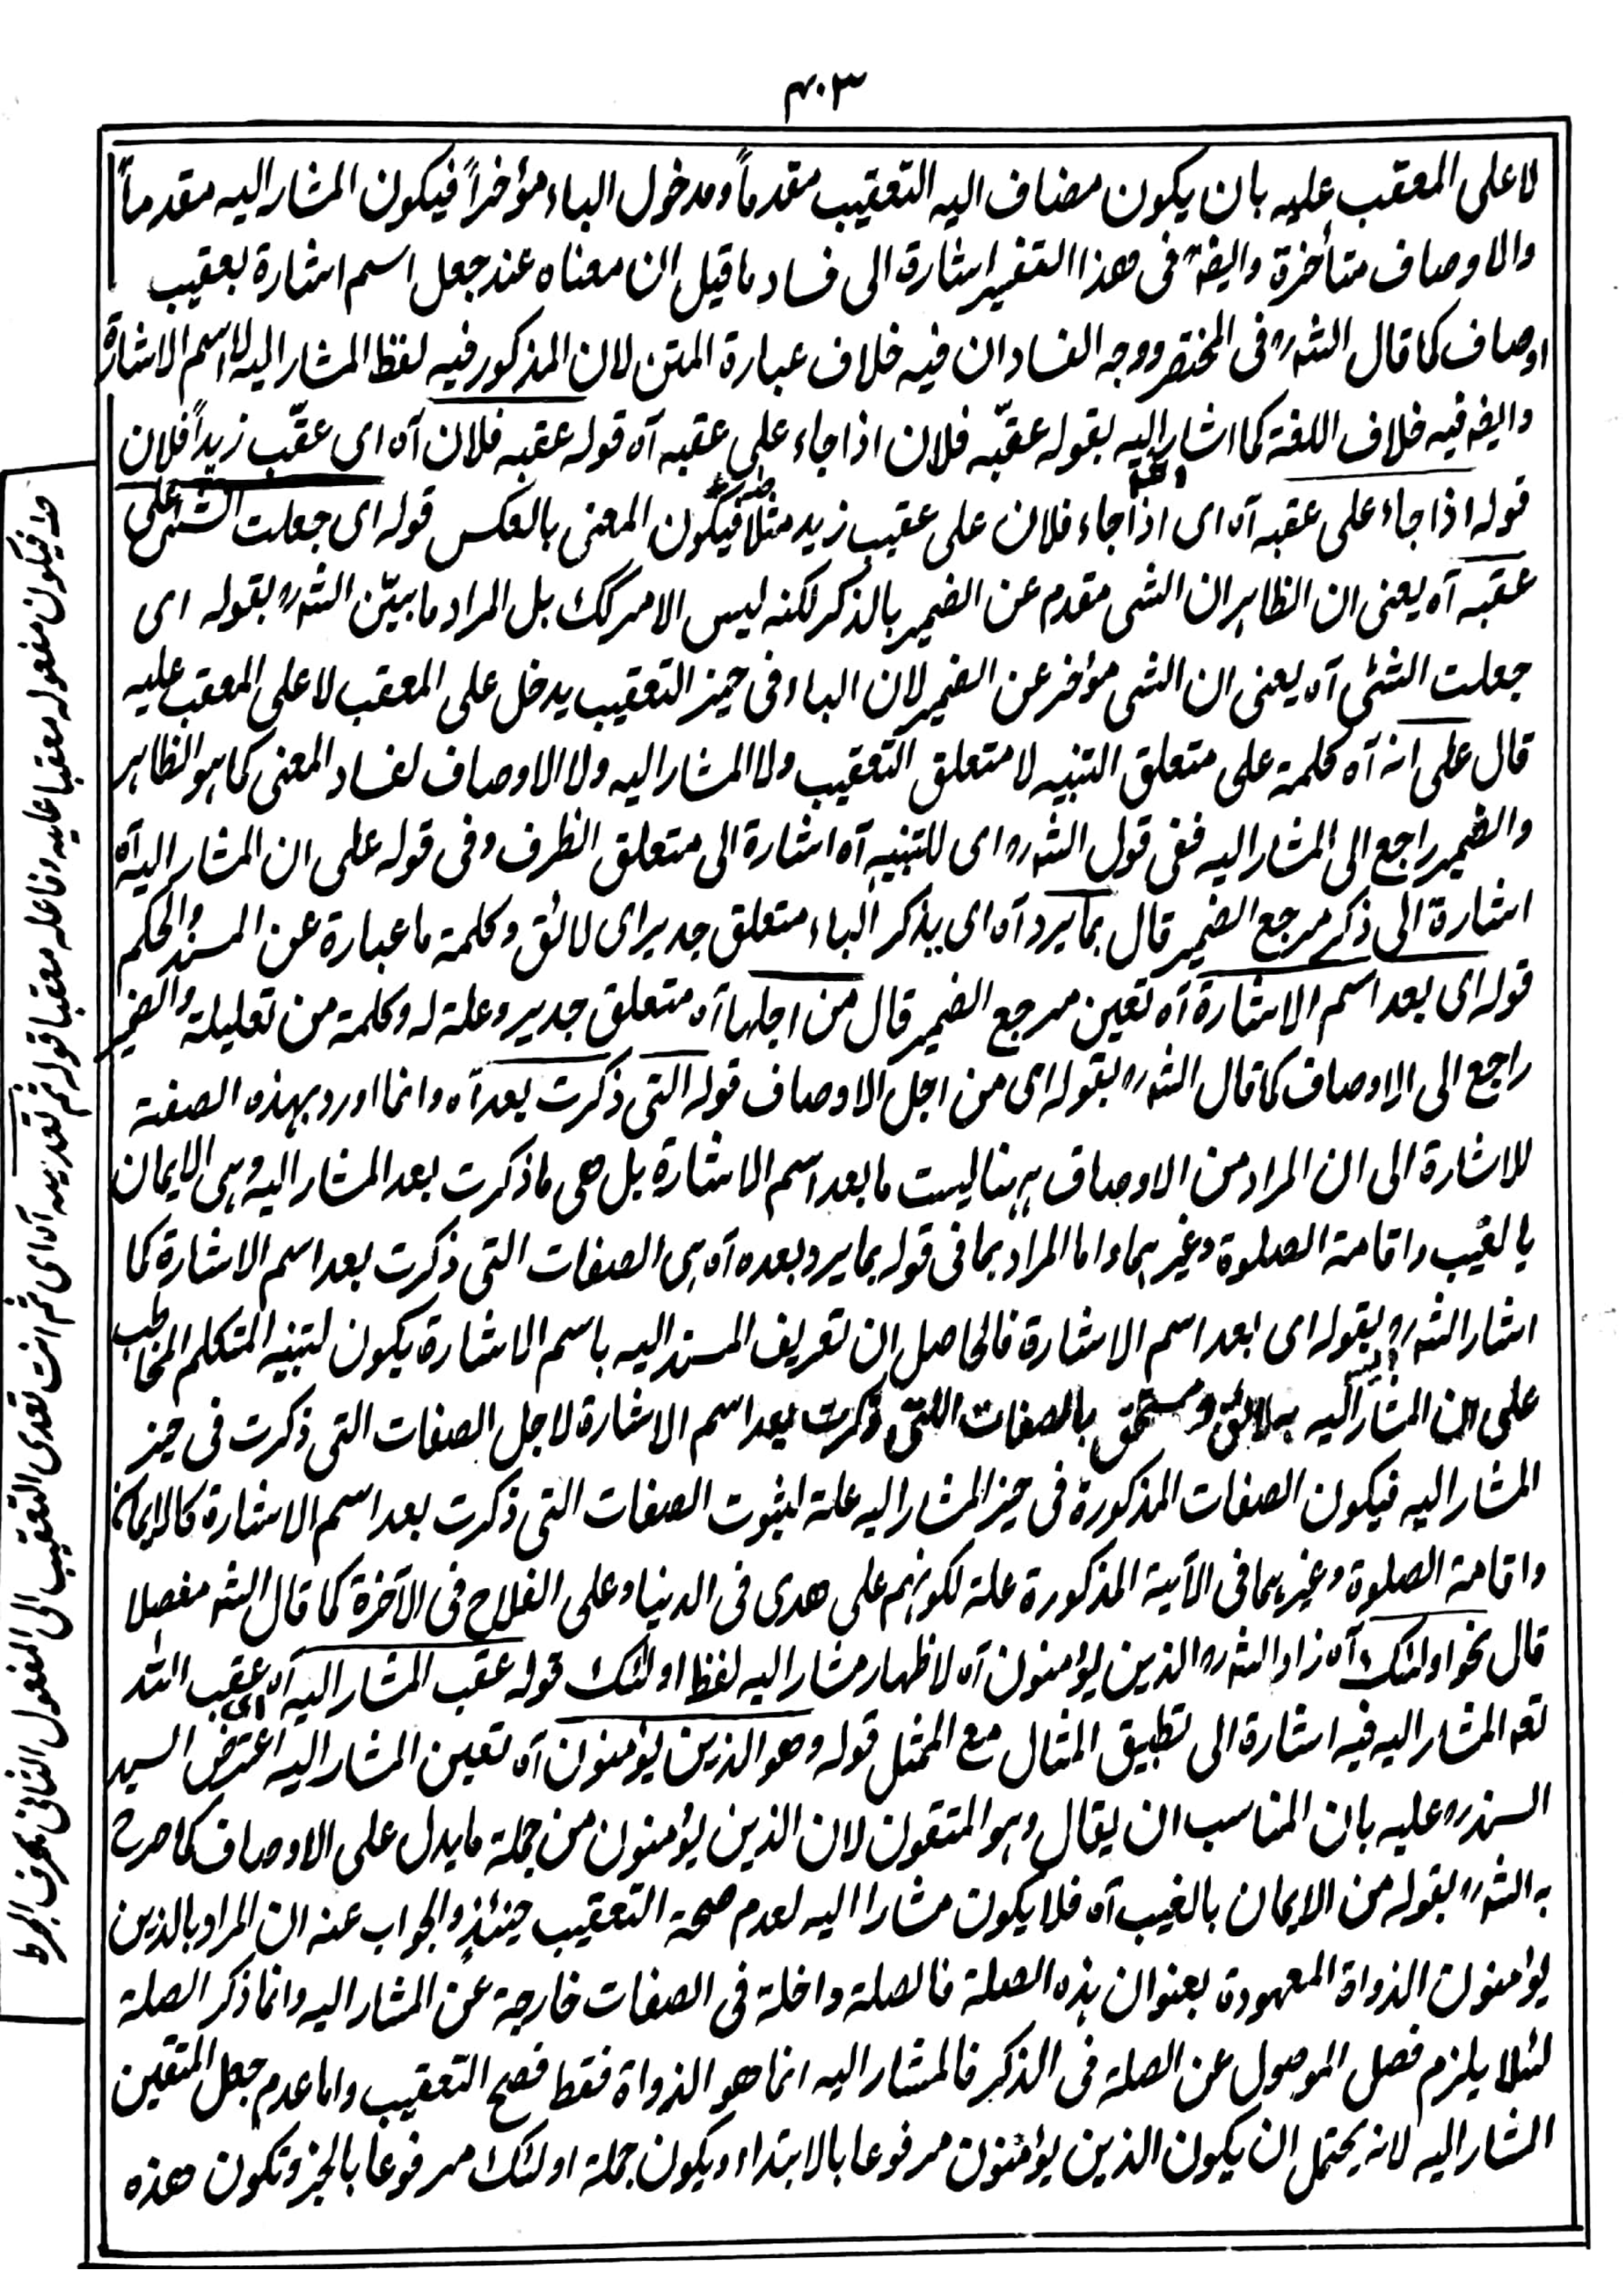 ۴۰۳
لا على المعقب عليه بان يكون مضاف اليه التعقيب مقدماً ومدخول الباء مؤخراً فيكون المشار اليه مقدماً
والاوصاف متأخرة وايضہ فى هذا التفسير اشارة الى فساد ما قيل ان معناه عند جعل اسم اشارة بعقيب
اوصاف كما قال الشہ رہ فى المختصر ووجه الفساد ان فيه خلاف عبارة المتن لان المذكور فيه لفظ المشار اليه لا اسم الاشارة
وايضہ فيه خلاف اللغة كما اشار اليه بقوله عقبّه فلان اذا جاء على عقبه آہ قوله عقبه فلان آہ اى عقّب زيداً فلان
قوله اذا جاء على عقبه آہ اى اذا جاء فلان على عقيب زيد مثلا فيكون المعنى بالعكس قوله اى جعلت الشئ على
عقبه آہ يعنى ان الظاہر ان الشى مقدم عن الضمير بالذكر لكنه ليس الامر كك بل المراد ما بيّن الشہ رہ بقوله اى
جعلت الشئى آہ يعنى ان الشى مؤخر عن الضمير لان الباء فى حيز التعقيب يدخل على المعقب لا على المعقب عليه
قال على انہ آہ كلمة على متعلق التنبيه لا متعلق التعقيب ولا المشار اليه ولا الاوصاف لفساد المعنى كما ہو الظاہر
والضمير راجع الى المشار اليه ففى قول الشہ رہ اى للتنبيه آہ اشارة الى متعلق الظرف وفى قوله على ان المشار اليه آہ
اشارة الى ذكر مرجع الضمير قال بما يرد آہ اى يذكر الباء متعلق جدير اى لائق وكلمة ما عبارة عن المسند والحكم
قوله اى بعد اسم الاشارة آہ تعين مرجع الضمير قال من اجلها آہ متعلق جدير وعلة له وكلمة من تعليلة والضمير
راجع الى الاوصاف كما قال الشہ رہ بقوله اى من اجل الاوصاف قوله التى ذكرت بعد آہ وانما اورد بهذه الصفة
للاشارة الى ان المراد من الاوصاف ہہنا ليست ما بعد اسم الاشارة بل هى ما ذكرت بعد المشار اليه وہى الايمان
بالغيب واقامة الصلوة وغيرہما واما المراد بما فى قوله بما يرد بعده آہ ہى الصفات التى ذكرت بعد اسم الاشارة كما
اشار الشہ رہ بقوله اى بعد اسم الاشارة فالحاصل ان تعريف المسند اليه باسم الاشارة يكون لتنبيه المتكلم المخاطب
على ان المشار اليه لائق ومستحق بالصفات التى ذكرت بعد اسم الاشارة لاجل الصفات التى ذكرت فى حيز
المشار اليه فيكون الصفات المذكورة فى حيز المشار اليه علة لثبوت الصفات التى ذكرت بعد اسم الاشارة كالايمان
واقامة الصلوة وغيرہما فى الآية المذكورة علة لكونہم على هدى فى الدنيا وعلى الفلاح فى الآخرة كما قال الشہ مفصلا
قال نحو اولئك آہ زاد الشہ رہ الذين يؤمنون آہ لاظهار مشار اليه لفظ اولئك قوله عقب المشار اليه آہ اى عقب اللہ
تعہ المشار اليه فيه اشارة الى تطبيق المثال مع الممثل قوله وهو الذين يؤمنون آہ تعين المشار اليه اعترض السيد
السند رہ عليه بان المناسب ان يقال وہو المتقون لان الذين يؤمنون من جملة ما يدل على الاوصاف كما صرح
به الشہ رہ بقوله من الايمان بالغيب آہ فلا يكون مشارا اليه لعدم صحة التعقيب حينئذٍ والجواب عنه ان المراد بالذين
يؤمنون الذواة المعهودة بعنوان ہذه الصلة فالصلة داخلة فى الصفات خارجة عن المشار اليه وانما ذكر الصلة
لئلا يلزم فصل الموصول عن الصلة فى الذكر فالمشار اليه انما هو الذواة فقط فصح التعقيب واما عدم جعل المتقين
المشار اليه لانه يحتمل ان يكون الذين يؤمنون مرفوعا بالابتداء ويكون جملة اولئك مرفوعا بالخبر وتكون هذه
فيكون مفعوله معقبا عليه وفاعله معقبا قوله ثم تعديہ آہ اى ثم انت تعدى التعقيب الى المفعول الثانى بحرف الجر